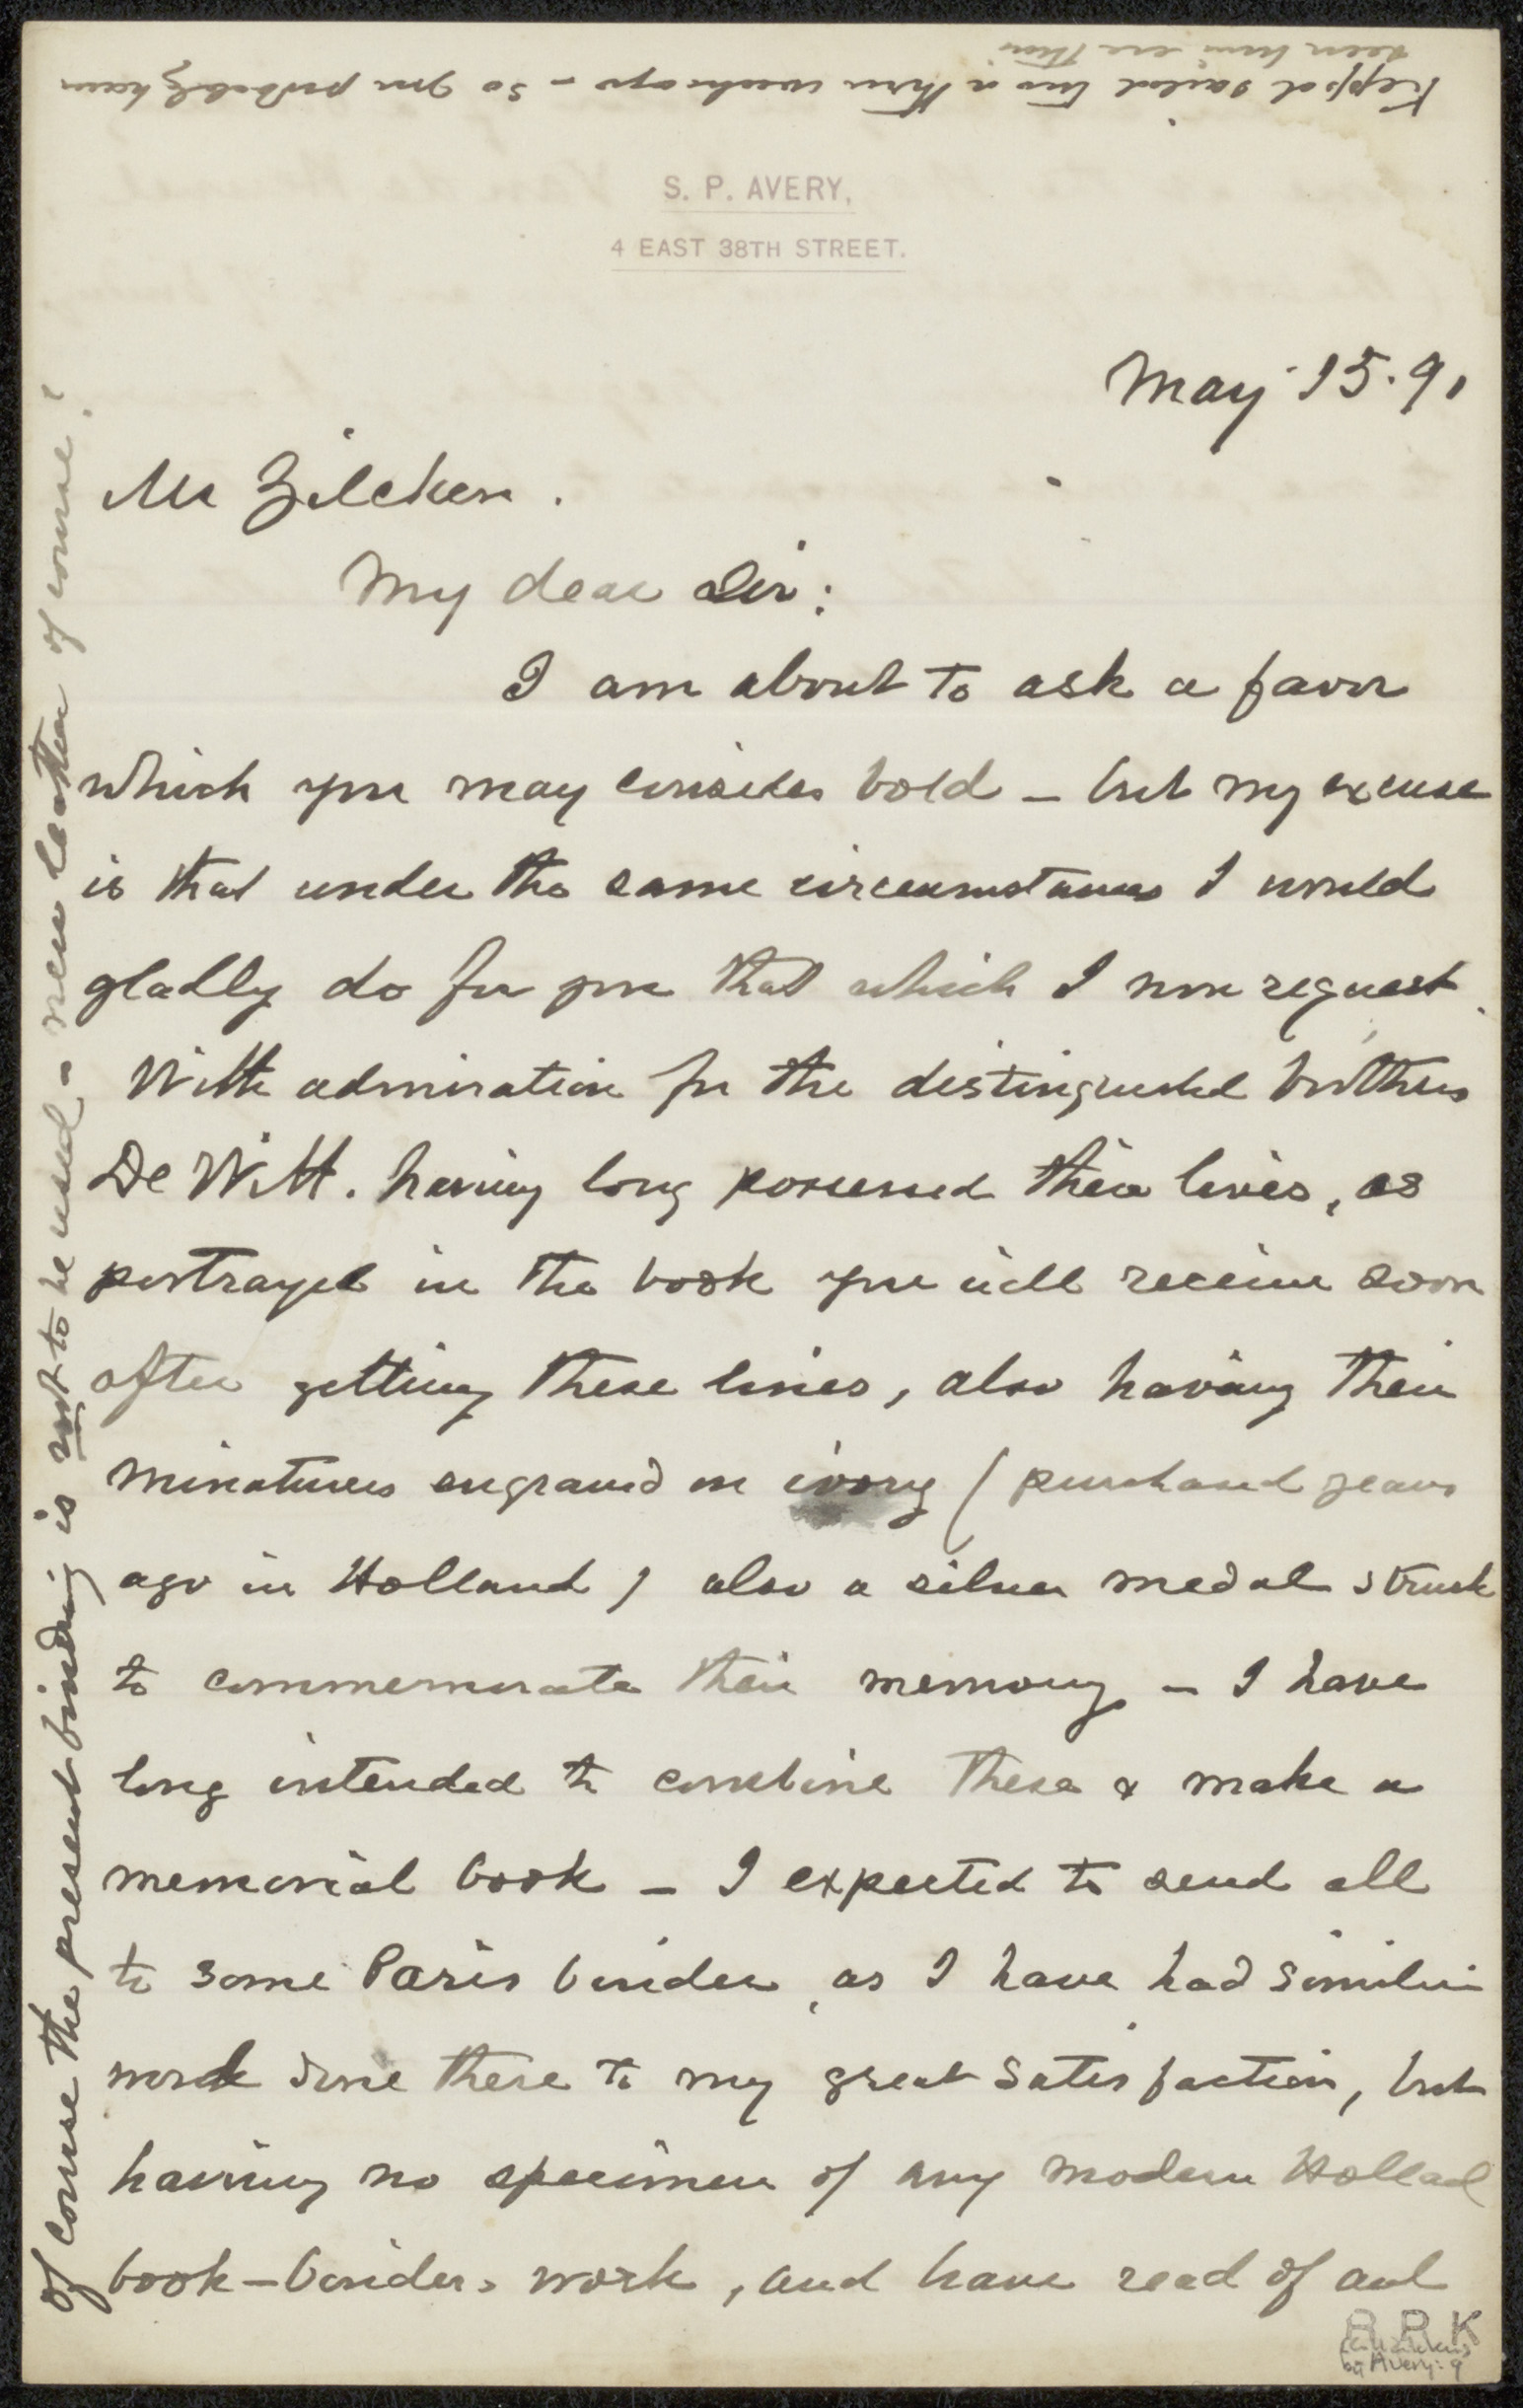 Keppel sailed two or three weeks ago - so you probably have
seen him ere this
S. P. AVERY,
4 EAST 38TH STREET.
May 15. 91
Mr Zilcken.
My dear Sir:
I am about to ask a favor
which you may consider bold - but my excuse
is that under the same circumstances I would
gladly do for you that which I now request.
With admiration for the distinguished brothers
De Witt. having long possessed their lives, as
portrayed in the book you will receive soon
after getting these lines, also having their
minatures engraved on ivory (purchased years
ago in Holland) also a silver medal struck
to commemorate their memory - I have
long intended to combine these & make a
memorial book - I expected to send all
to some Paris binder, as I have had similar
work done there to my great satisfaction, but
having no specimen of any modern Holland
book-binders work, and have read of and
of course the present binding is not to be used - new leather of course!
R P K
by Avery: 9